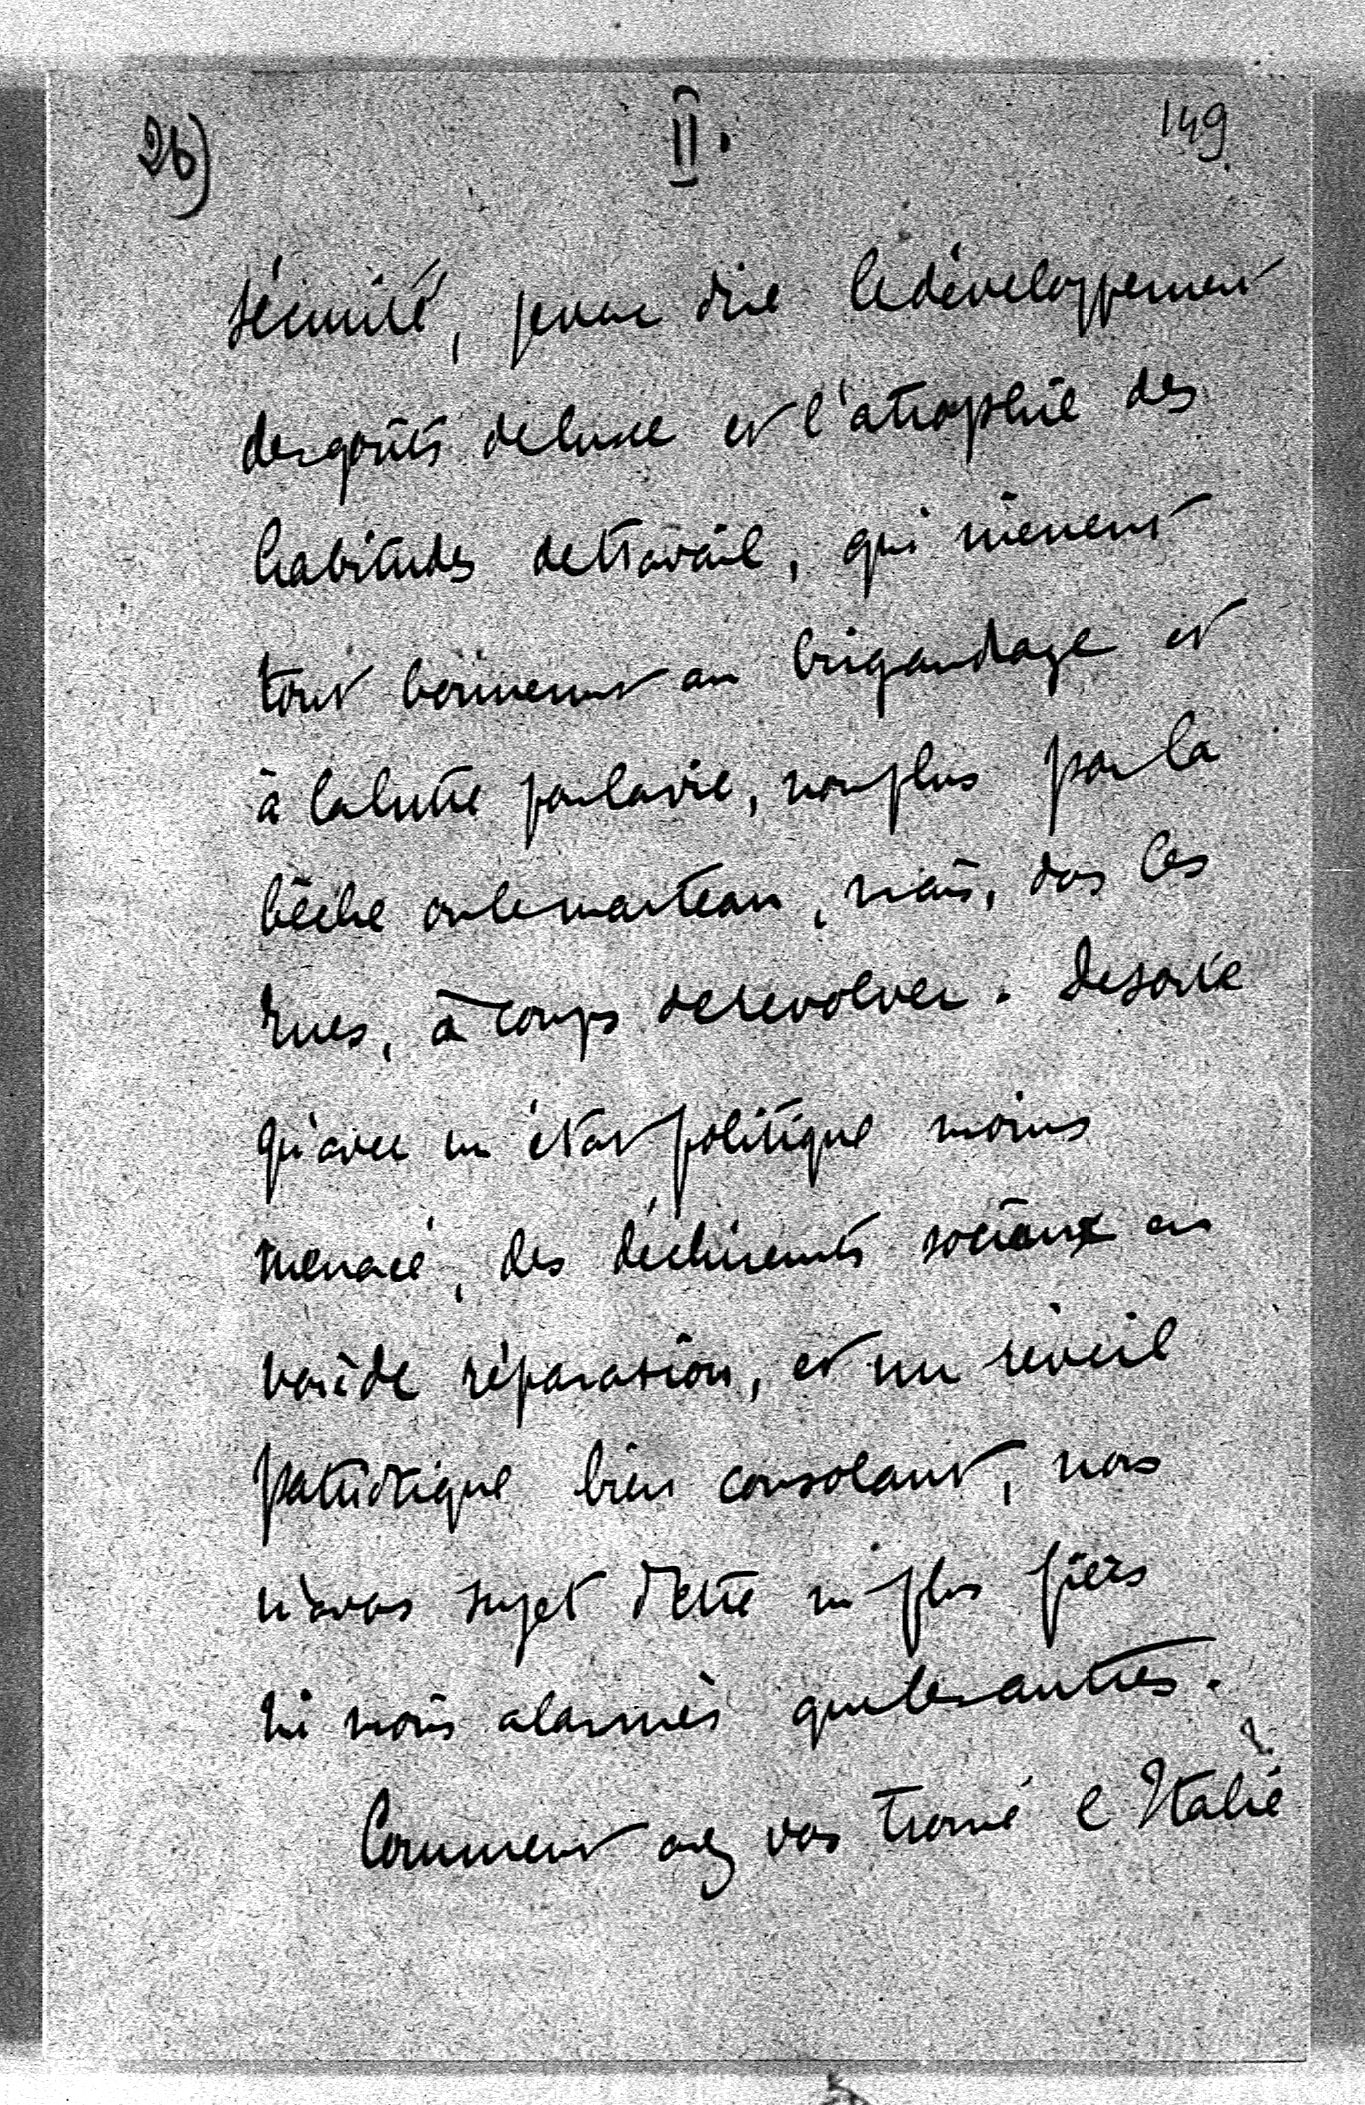 26) II. 149
sécurité, je veux dire le développement
des goûts de luxe et l'atrophie des
habitudes de travail, qui mènent
tout bonnement au brigandage et
à la lutte pour la vie, non plus par la
bêche ou le marteau, mais, dans les
rues, à coups de revolver. De sorte
qu'avec un état politique moins
menacé, des déchirements sociaux en
voie de réparation, et un réveil
patriotique bien consolant, nous
n'avons sujet d'être ni plus fiers
ni moins alarmés que les autres.
Comment avez vous trouvé l'Italie ?